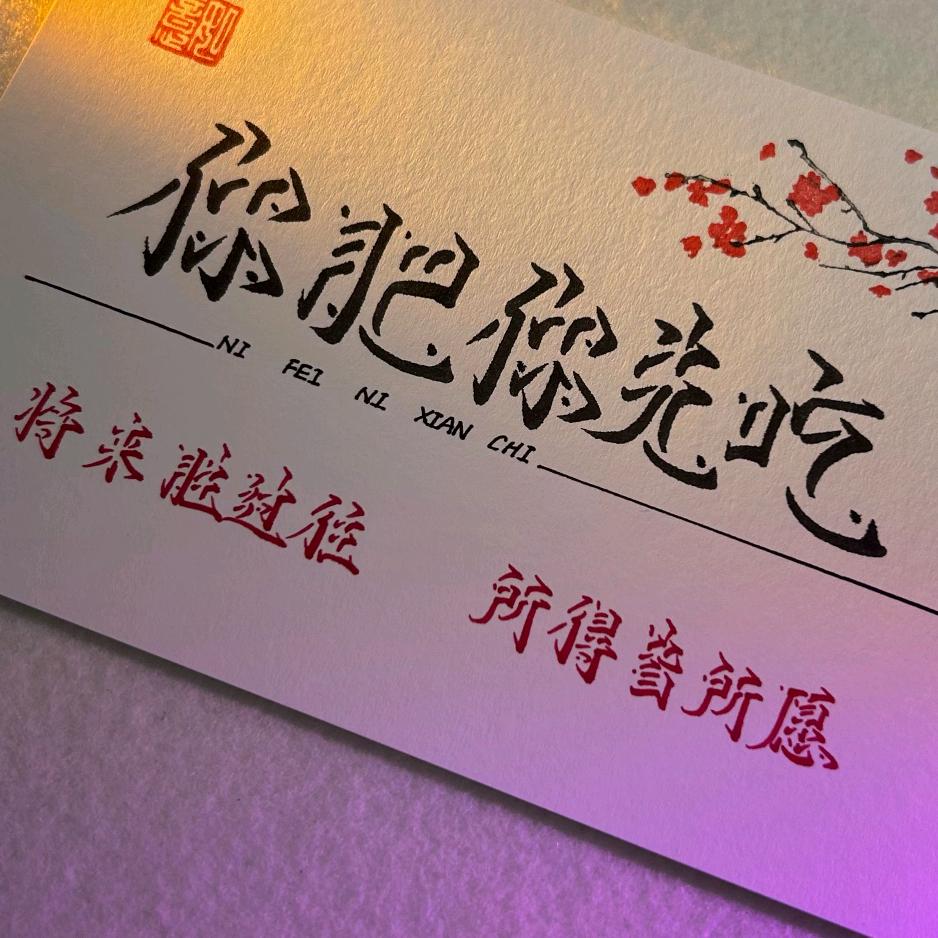 你肥你先吃
NI FEI NI XIAN CHI
将来胜过往 所得皆所愿